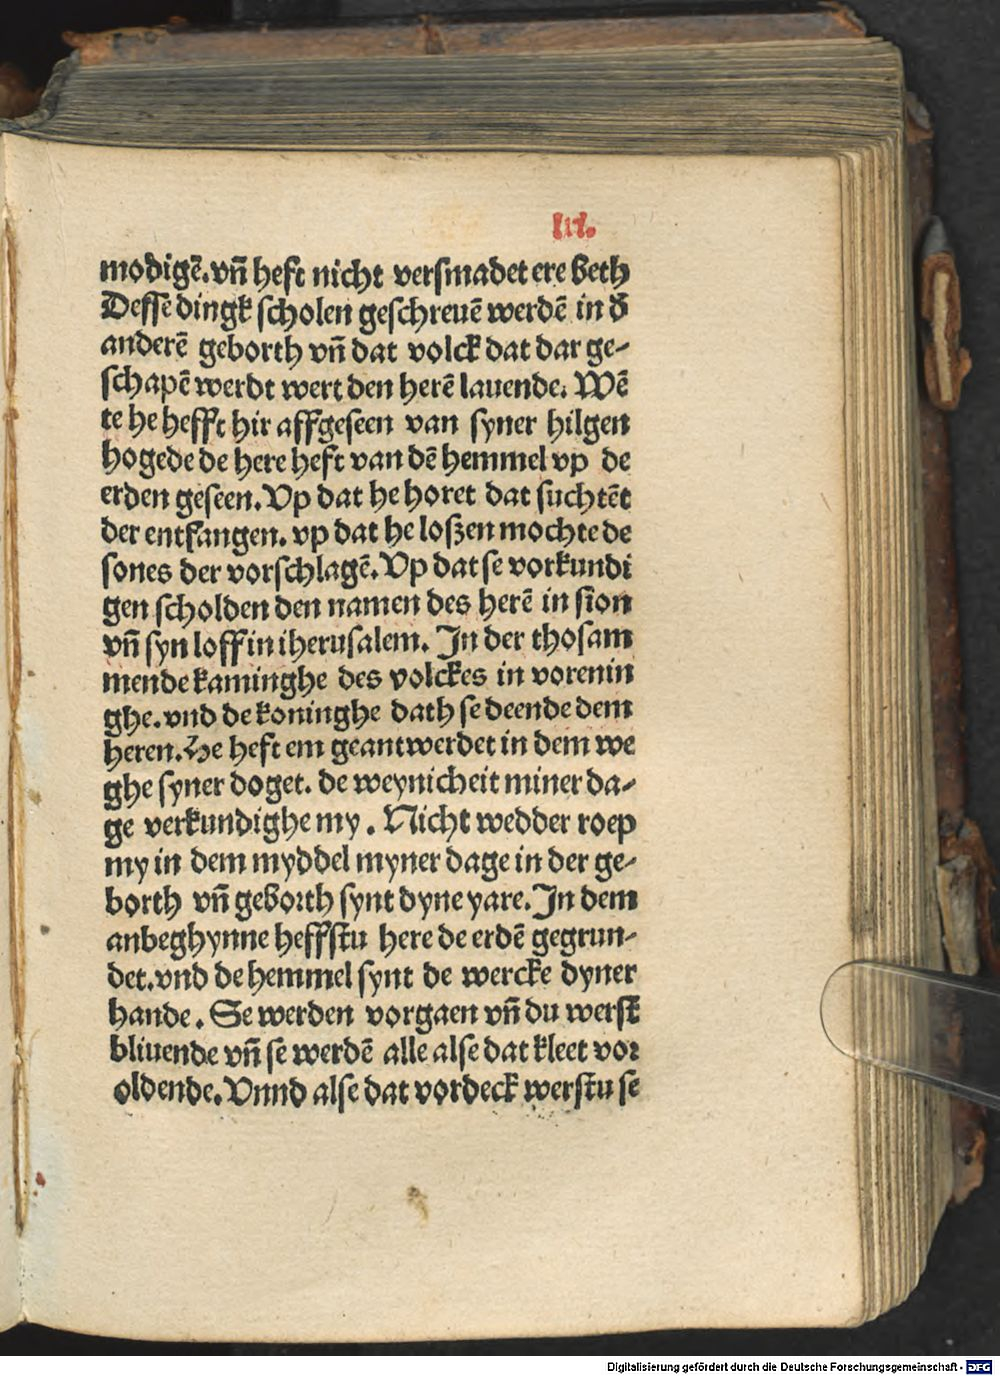 lii.
modigē. vn̄ heft nicht versmadet ere beth
Desse dingk scholen geschreuē werdē in d̄
anderē geborth vn̄ dat volck dat dar ge-
schapē werdt wert den herē lauende. Wē
te he hefft hir affgeseen van syner hilgen
hogede de here heft van dē hemmel vp de
erden geseen. Vp dat he horet dat suchtēt
der entfangen. vp dat he loszen mochte de
sones der vorschlagē. Vp dat se vorkundi
gen scholden den namen des herē in sion
vn̄ syn loff in iherusalem. In der thosam
mende kaminghe des volckes in vorenin
ghe. vnd de koninghe dath se deende dem
heren. He heft em geantwerdet in dem we
ghe syner doget. de weynicheit miner da-
ge verkundighe my. Nicht wedder roep
my in dem myddel myner dage in der ge-
borth vn̄ geborth synt dyne yare. In dem
anbeghynne heffstu here de erdē gegrun-
det. vnd de hemmel synt de wercke dyner
hande. Se werden vorgaen vn̄ du werst
bliuende vn̄ se werdē alle alse dat kleet vor
oldende. Vnnd alse dat vordeck werstu se
Digitalisierung gefördert durch die Deutsche Forschungsgemeinschaft - DFG